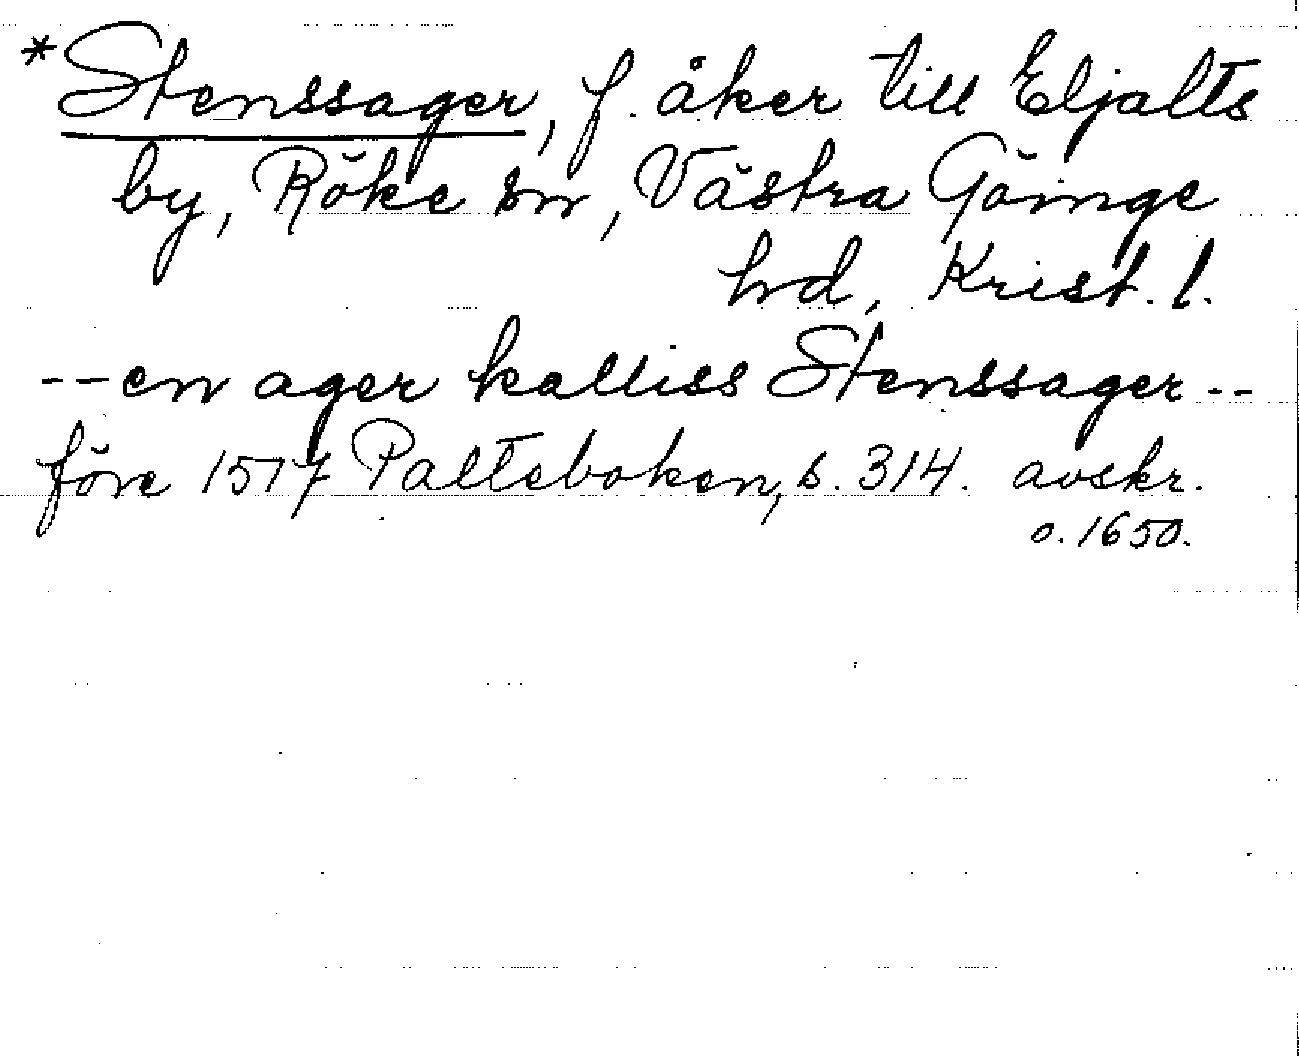 *Stenssager, f. åker till Eljalts
by, Röke sn, Västra Göinge
hd, Krist. l.
--en ager kalliss Stenssager--
före 1517 Palteboken, s. 314. avskr.
o. 1650.